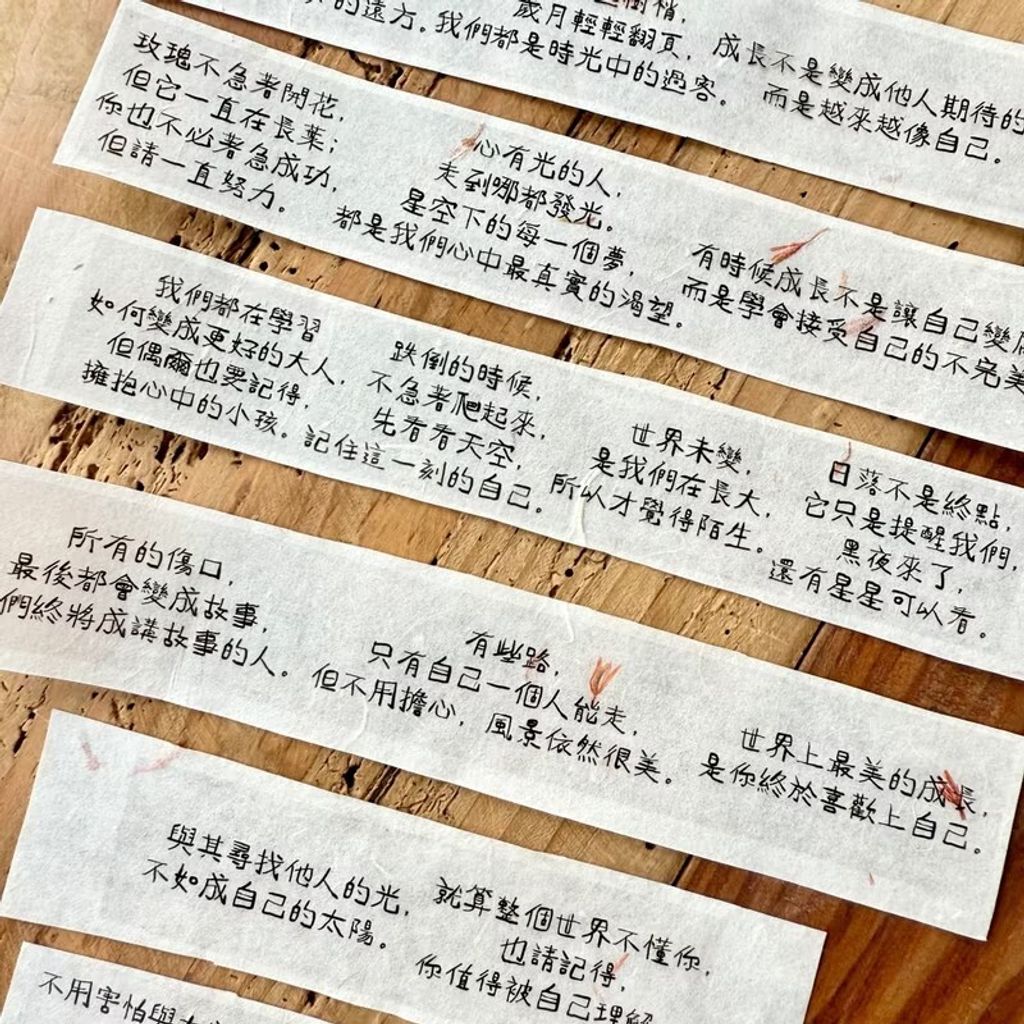 樹梢，
的遠方。
歲月輕輕翻頁，
我們都是時光中的過客。
成長不是變成他人期待的
而是越來越像自己。
玫瑰不急著開花，
但它一直在長葉；
你也不必著急成功，
但請一直努力。
心有光的人，
走到哪都發光。
星空下的每一個夢，
都是我們心中最真實的渴望。
有時候成長不是讓自己變
而是學會接受自己的不完美
我們都在學習
如何變成更好的大人，
但偶爾也要記得，
擁抱心中的小孩。
跌倒的時候，
不急著爬起來，
先看看天空，
記住這一刻的自己。
世界未變，
是我們在長大，
所以才覺得陌生。
日落不是終點，
它只是提醒我們，
黑夜來了，
還有星星可以看。
所有的傷口，
最後都會變成故事，
們終將成講故事的人。
有些路，
只有自己一個人能走，
但不用擔心，風景依然很美。
世界上最美的成長，
是你終於喜歡上自己。
與其尋找他人的光，
不如成自己的太陽。
就算整個世界不懂你，
也請記得，
你值得被自己理解
不用害怕與